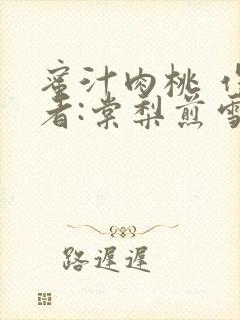 蜜汁肉桃
者:棠梨煎雪
路遲遲